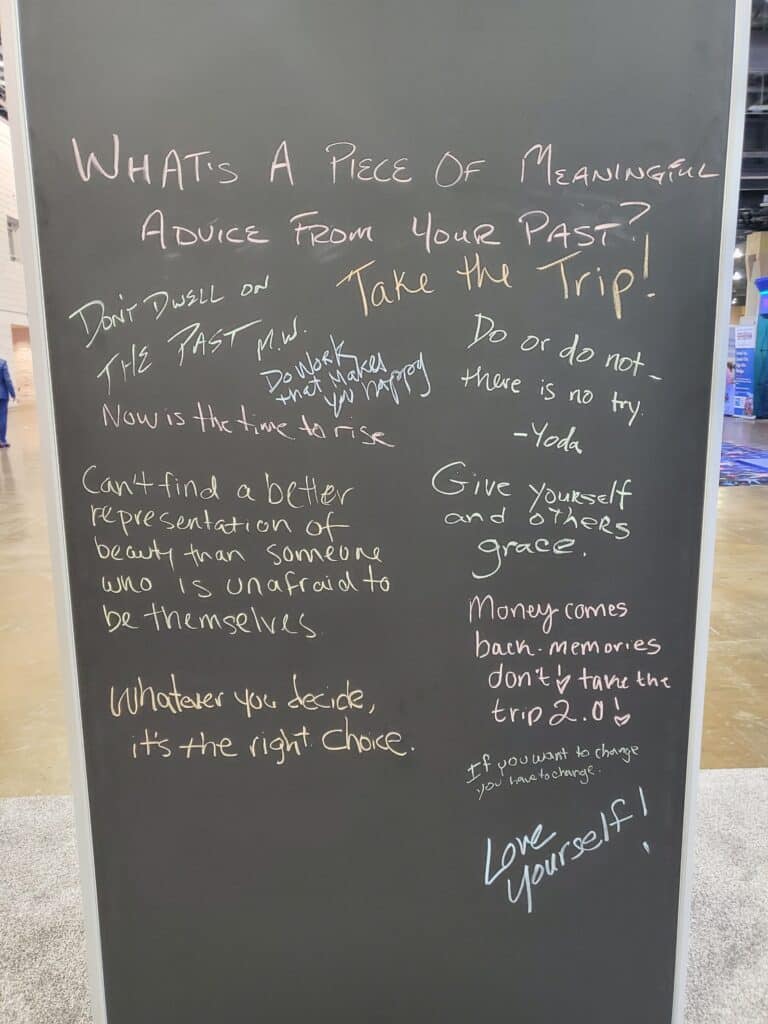 WHAT'S A PIECE OF MEANINGFUL
ADVICE FROM YOUR PAST?
Take the Trip!
DON'T DWELL ON
THE PAST M.W.
Do Work
that makes
you happy
Do or do not-
there is no try.
-Yoda
Now is the time to rise
Can't find a better
representation of
beauty than someone
who is unafraid to
be themselves.
Give yourself
and others
grace.
Money comes
back. memories
don't! take the
trip 2.0!
Whatever you decide,
it's the right choice.
If you want to change
you have to change.
Love
Yourself!